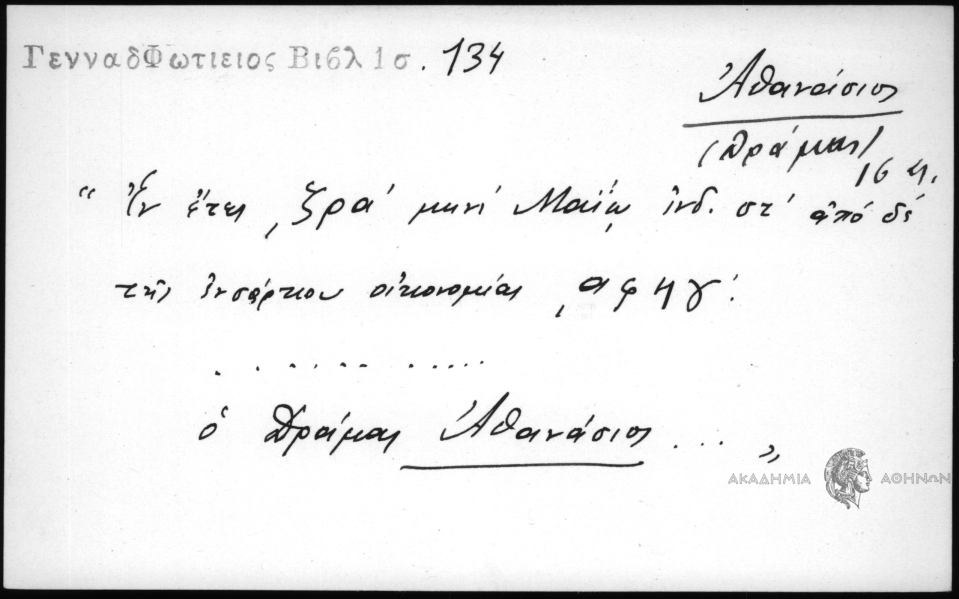 ΓενναδΦωτιειος Βιβλ 1σ. 134
Ἀθανάσιος
(Δράμας)
16 η.
“ Ἐν ἔτει ͵ζρα΄ μηνὶ Μαΐῳ ἰνδ. στ΄ ἀπὸ δὲ
τῆς ἐνσάρκου οἰκονομίας ͵αφηγ΄.
. . . . . . . . . . . .
ὁ Δράμας Ἀθανάσιος ... „
ΑΚΑΔΗΜΙΑ ΑΘΗΝΩΝ